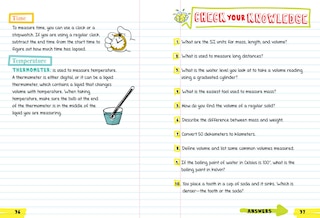 Time
To measure time, you can use a clock or a
stopwatch. If you are using a regular clock,
subtract the end time from the start time to
figure out how much time has lapsed.
Temperature
THERMOMETER is used to measure temperature.
A thermometer is either digital, or it can be a liquid
thermometer, which contains a liquid that changes
volume with temperature. When taking
temperature, make sure the bulb at the end
of the thermometer is in the middle of the
liquid you are measuring.
76
CHECK YOUR KNOWLEDGE
1. What are the SI units for mass, length, and volume?
2. What is used to measure long distances?
3. What is the water level you look at to take a volume reading
using a graduated cylinder?
4. What is the easiest tool used to measure mass?
5. How do you find the volume of a regular solid?
6. Describe the difference between mass and weight.
7. Convert 50 dekameters to kilometers.
8. Define volume and list some common volumes measured.
9. If the boiling point of water in Celsius is 100°, what is the
boiling point in Kelvin?
10. You place a tooth in a cup of soda and it sinks. Which is
denser—the tooth or the soda?
ANSWERS
77